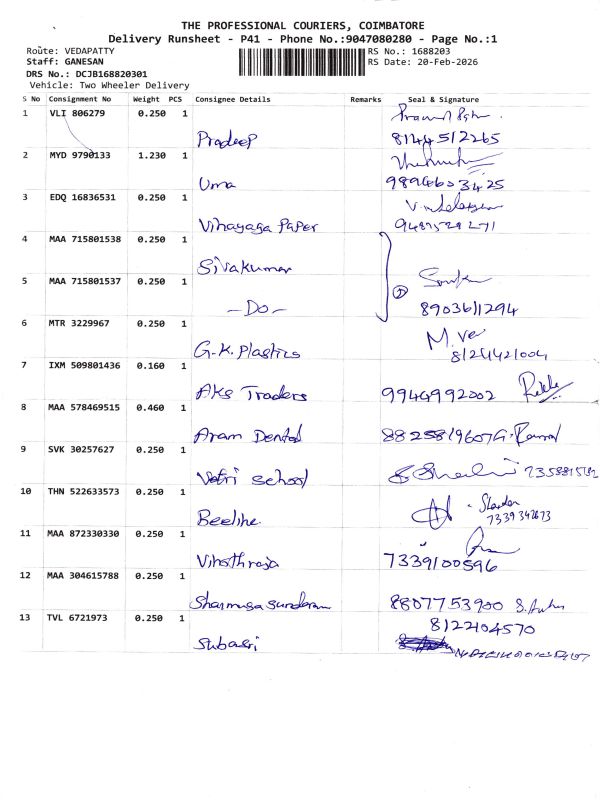 THE PROFESSIONAL COURIERS, COIMBATORE
Delivery Runsheet - P41 - Phone No.:9047080280 - Page No.:1
Route: VEDAPATTY
RS No.: 1688203
Staff: GANESAN
RS Date: 20-Feb-2026
DRS No.: DCJB168820301
Vehicle: Two Wheeler Delivery
S No Consignment No Weight PCS Consignee Details Remarks Seal & Signature
1 VLI 806279 0.250 1
Pradeep 8144512265
2 MYD 9790133 1.230 1
Uma 9894603425
3 EDQ 16836531 0.250 1
Vinayaga Paper
4 MAA 715801538 0.250 1
Sivakumar
5 MAA 715801537 0.250 1
-Do- 8903611294
6 MTR 3229967 0.250 1
G.K. Plastics
7 IXM 509801436 0.160 1
AKS Traders 9944992002
8 MAA 578469515 0.460 1
Aram Dental 8825819607
9 SVK 30257627 0.250 1
Vetri School
10 THN 522633573 0.250 1
Beeline
11 MAA 872330330 0.250 1
Vinothraja 7339100596
12 MAA 304615788 0.250 1
Shanmuga Sundaram 8807753900
13 TVL 6721973 0.250 1
8122104570
Subasri